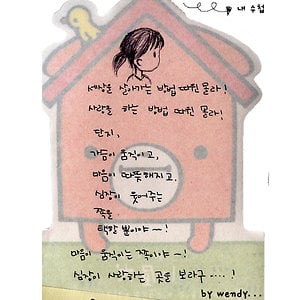 내 수첩
세상을 살아가는 방법 따윈 몰라!
사랑을 하는 방법 따윈 몰라!
단지,
가슴이 움직이고,
마음이 따뜻해지고,
심장이 웃어주는
쪽을
택할 뿐이야~!
마음이 움직이는 쪽이야~!
심장이 사랑하는 곳을 보라구....!
by wendy...